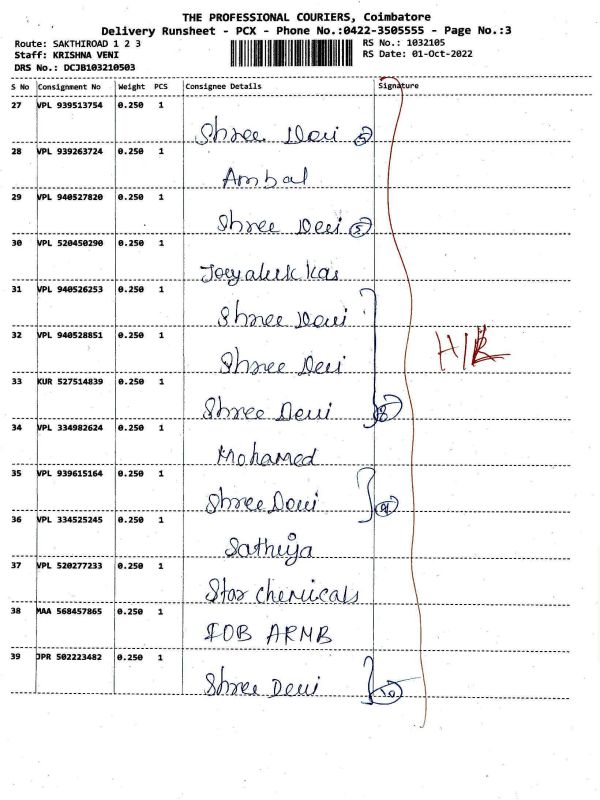 THE PROFESSIONAL COURIERS, Coimbatore
Delivery Runsheet - PCX - Phone No.:0422-3505555 - Page No.:3
Route: SAKTHIROAD 1 2 3 RS No.: 1032105
Staff: KRISHNA VENI RS Date: 01-Oct-2022
DRS No.: DCJB103210503
S No Consignment No Weight PCS Consignee Details Signature
27 VPL 939513754 0.250 1
Shree Devi 5
28 VPL 939263724 0.250 1
Ambal
29 VPL 940527820 0.250 1
Shree Devi 5
30 VPL 520450290 0.250 1
Joeyalukkas
31 VPL 940526253 0.250 1
Shree Devi
32 VPL 940528851 0.250 1
Shree Devi
33 KUR 527514839 0.250 1
Shree Devi 8
34 VPL 334982624 0.250 1
Mohamed
35 VPL 939615164 0.250 1
Shree Devi 9
36 VPL 334525245 0.250 1
Sathiya
37 VPL 520277233 0.250 1
Star chemicals
38 MAA 568457865 0.250 1
IOB ARMB
39 JPR 502223482 0.250 1
Shree Devi 10